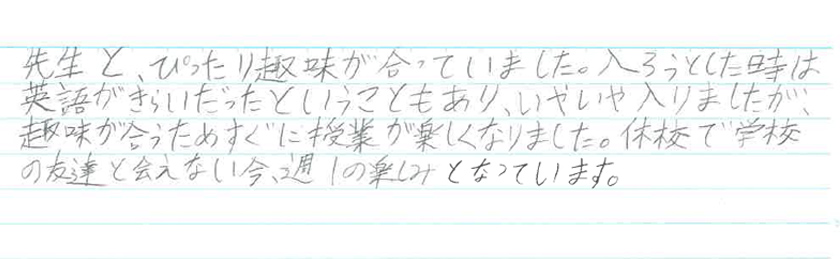 先生と、ぴったり趣味が合っていました。入ろうとした時は
英語がきらいだったということもあり、いやいや入りましたが、
趣味が合うためすぐに授業が楽しくなりました。休校で学校
の友達と会えない今、週1の楽しみとなっています。